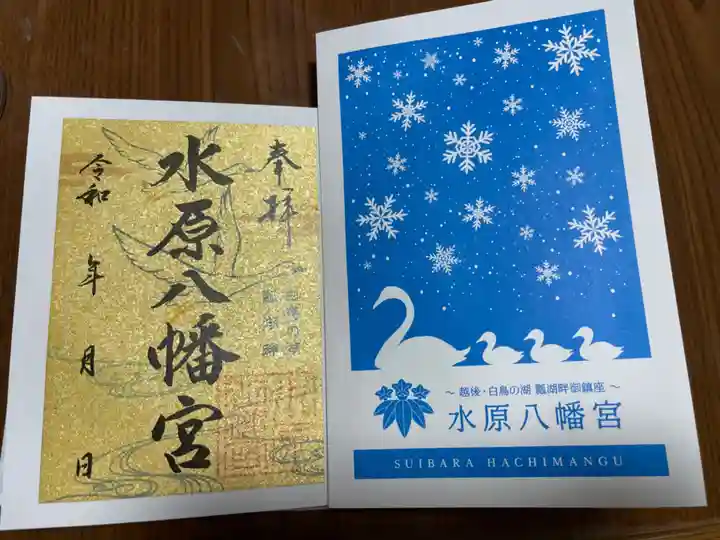 奉拝
水原八幡宮
令和 年 月 日
〜 越後・白鳥の湖 瓢湖畔御鎮座 〜
水原八幡宮
SUIBARA HACHIMANGU